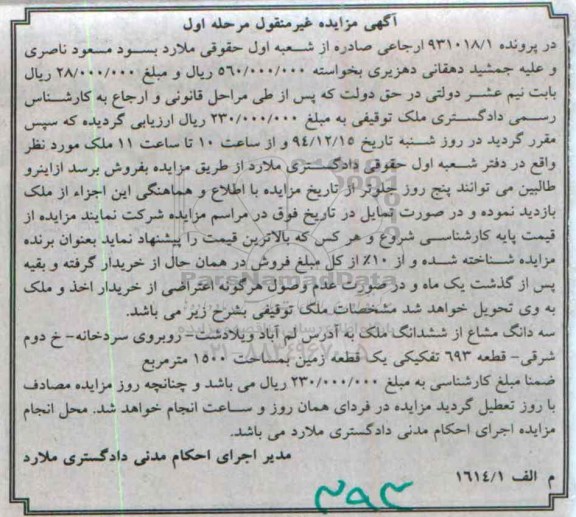 آگهی مزایده غیرمنقول مرحله اول
در پرونده ۹۳۱۰۱۸/۱ ارجاعی صادره از شعبه اول حقوقی ملارد بسود مسعود ناصری
و علیه جمشید دهقانی دهزیری بخواسته ۵۶۰/۰۰۰/۰۰۰ ریال و مبلغ ۲۸/۰۰۰/۰۰۰ ریال
بابت نیم عشر دولتی در حق دولت که پس از طی مراحل قانونی و ارجاع به کارشناس
رسمی دادگستری ملک توقیفی به مبلغ ۲۳۰/۰۰۰/۰۰۰ ریال ارزیابی گردیده که سپس
مقرر گردید در روز شنبه تاریخ ۹۴/۱۲/۱۵ و از ساعت ۱۰ تا ساعت ۱۱ ملک مورد نظر
واقع در دفتر شعبه اول حقوقی دادگستری ملارد از طریق مزایده بفروش برسد ازاینرو
طالبین می توانند پنج روز جلوتر از تاریخ مزایده با اطلاع و هماهنگی این اجراء از ملک
بازدید نموده و در صورت تمایل در تاریخ فوق در مراسم مزایده شرکت نمایند مزایده از
قیمت پایه کارشناسی شروع و هر کس که بالاترین قیمت را پیشنهاد نماید بعنوان برنده
مزایده شناخته شده و از ۱۰٪ از کل مبلغ فروش در همان حال از خریدار گرفته و بقیه
پس از گذشت یک ماه و در صورت عدم وصول هرگونه اعتراضی از خریدار اخذ و ملک
به وی تحویل خواهد شد مشخصات ملک توقیفی بشرح زیر می باشد.
سه دانگ مشاع از ششدانگ ملک به آدرس لم آباد ویلادشت- روبروی سردخانه- خ دوم
شرقی- قطعه ۶۹۳ تفکیکی یک قطعه زمین بمساحت ۱۵۰۰ مترمربع
ضمنا مبلغ کارشناسی به مبلغ ۲۳۰/۰۰۰/۰۰۰ ریال می باشد و چنانچه روز مزایده مصادف
با روز تعطیل گردید مزایده در فردای همان روز و ساعت انجام خواهد شد. محل انجام
مزایده اجرای احکام مدنی دادگستری ملارد می باشد.
مدیر اجرای احکام مدنی دادگستری ملارد
م الف ۱۶۱۴/۱
۲۹۳
ParsNamadData